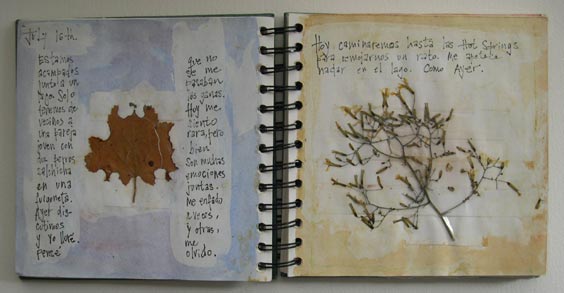 July 16th.
Estamos
acampados
junto a un
lago. Solo
tenemos de
vecinos a
una pareja
joven con
su perro
salchicha
en una
furgoneta.
Ayer dis-
cutimos
y yo lloré.
Pensé
que no
se me
pasaban
las ganas.
Hoy me
siento
rara, pero
bien.
Son muchas
emociones
juntas.
Me enfado
a veces,
y otras,
me
olvido.
Hoy caminaremos hasta las Hot Springs
para remojarnos un rato. Me apetece
nadar en el lago. Como Ayer.